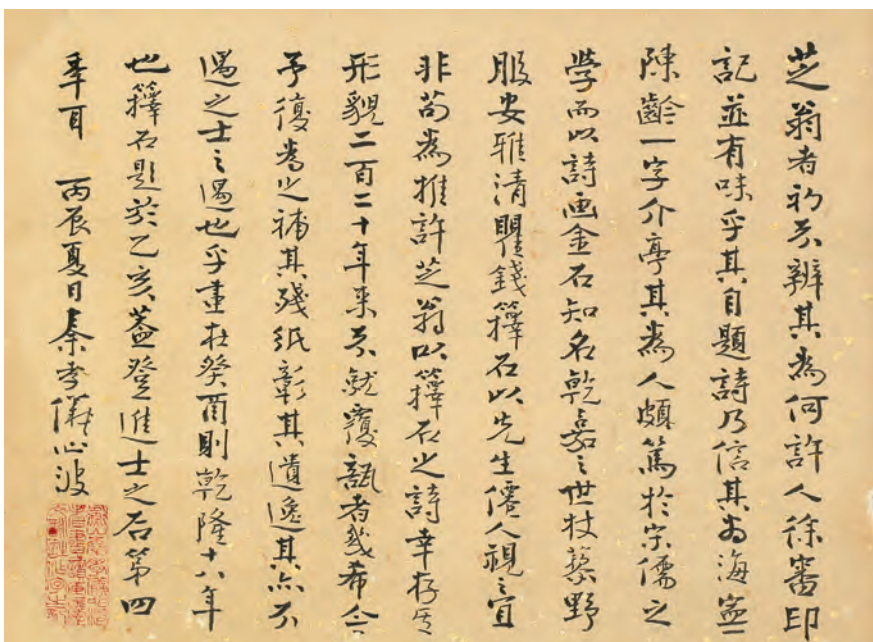 芝翁者初不辨其為何許人徐審印
記並有味乎其自題詩乃信其為海寧
陳齡一字介亭其為人頗篤於宋儒之
學而以詩画金石知名乾嘉之世杖藜野
服安雅清臞錢籜石以先生僊人視之宜
非苟為推許芝翁以籜石之詩幸存其
形貌二百二十年来不就覆瓿者幾希今
予復為之補其殘紙彰其遺逸其亦不
遇之士之遇也乎畫在癸酉則乾隆十八年
也籜石題於乙亥蓋登進士之后第四
年耳 丙辰夏日秦孝儀心波